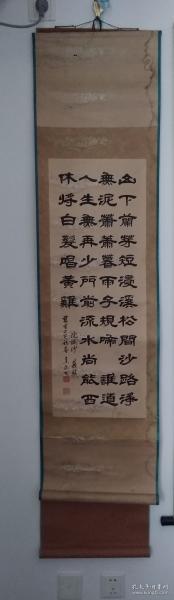 山下蘭芽短浸溪松間沙路淨
無泥蕭蕭暮雨子規啼誰道
人生無再少門前流水尚能西
休將白髮唱黃雞
浣溪沙 蘇軾